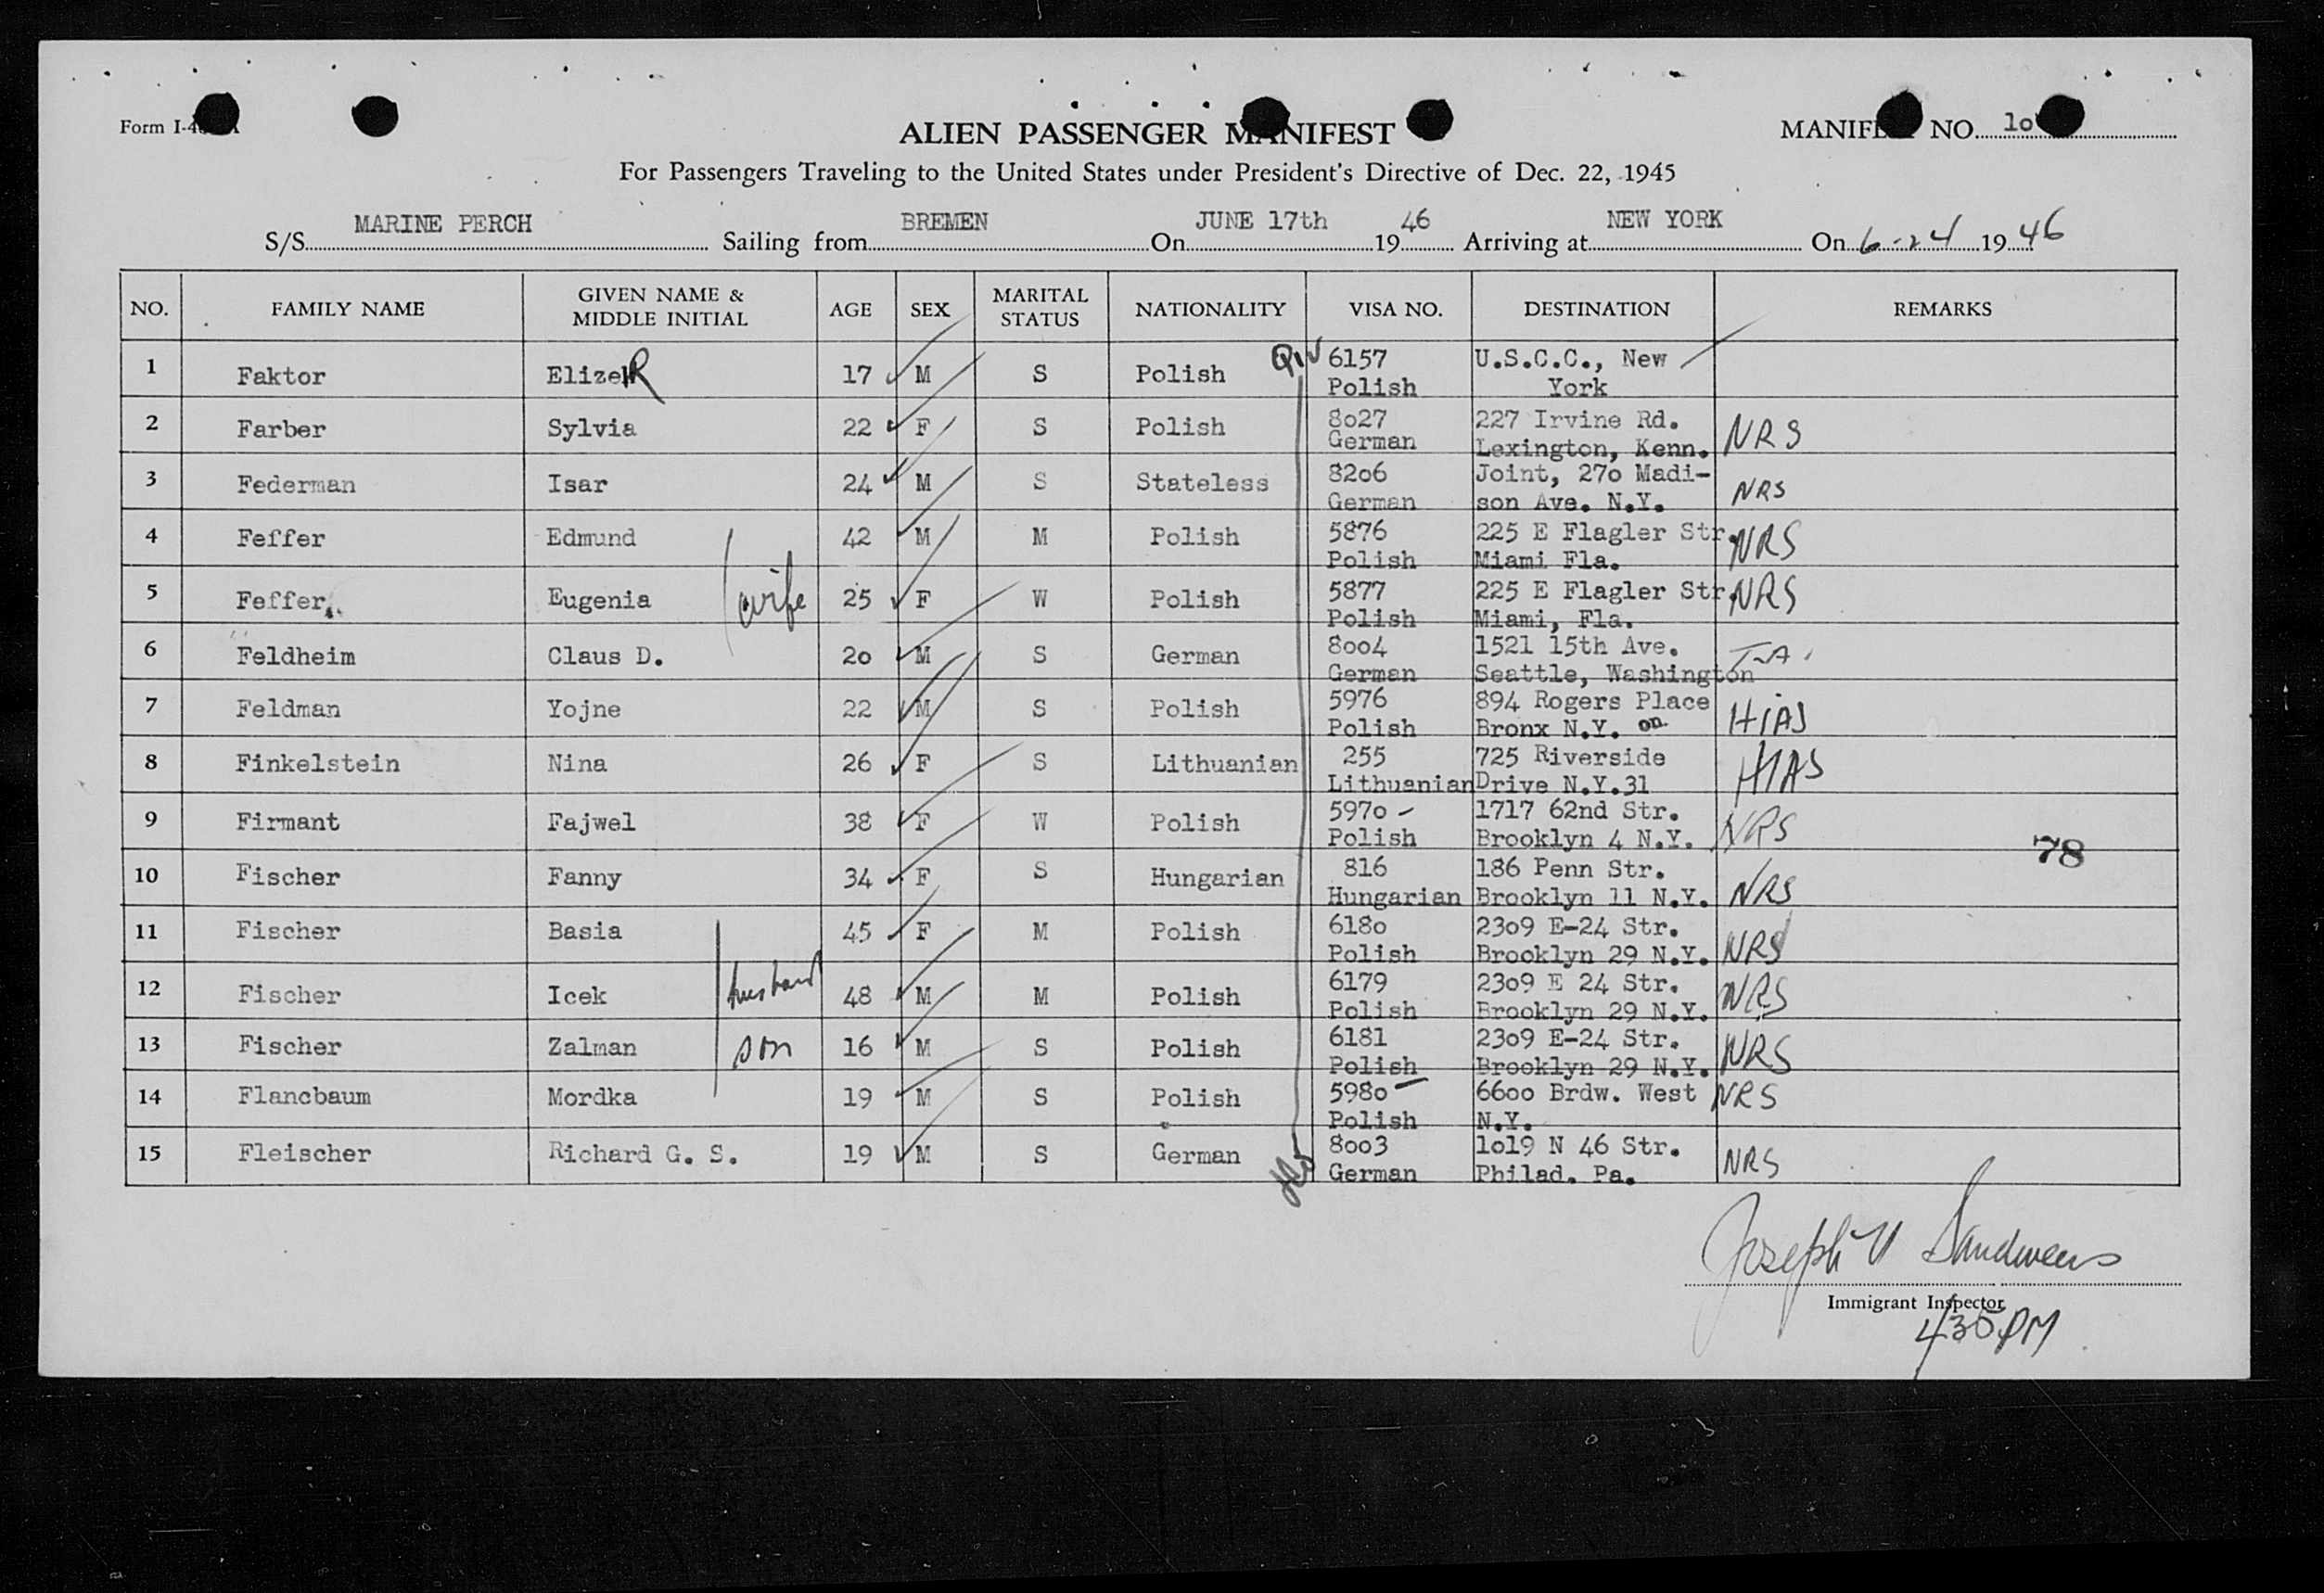 Form I-4
ALIEN PASSENGER MANIFEST
MANIFEST NO. 10
For Passengers Traveling to the United States under President's Directive of Dec. 22, 1945
S/S MARINE PERCH Sailing from BREMEN On JUNE 17th 1946 Arriving at NEW YORK On 6-24 1946
NO. FAMILY NAME GIVEN NAME & MIDDLE INITIAL AGE SEX MARITAL STATUS NATIONALITY VISA NO. DESTINATION REMARKS
1 Faktor ElizeR 17 M S Polish 6157 U.S.C.C., New
Polish York
2 Farber Sylvia 22 F S Polish 8027 227 Irvine Rd. NRS
German Lexington, Kenn.
3 Federman Isar 24 M S Stateless 8206 Joint, 270 Madi- NRS
German son Ave. N.Y.
4 Feffer Edmund 42 M M Polish 5876 225 E Flagler Str. NRS
Polish Miami Fla.
5 Feffer Eugenia wife 25 F W Polish 5877 225 E Flagler Str. NRS
Polish Miami, Fla.
6 Feldheim Claus D. 20 M S German 8004 1521 15th Ave.
German Seattle, Washington
7 Feldman Yojne 22 M S Polish 5976 894 Rogers Place HIAS
Polish Bronx N.Y. on
8 Finkelstein Nina 26 F S Lithuanian 255 725 Riverside HIAS
Lithuanian Drive N.Y.31
9 Firmant Fajwel 38 F W Polish 5970 - 1717 62nd Str. NRS
Polish Brooklyn 4 N.Y.
78
10 Fischer Fanny 34 F S Hungarian 816 186 Penn Str. NRS
Hungarian Brooklyn 11 N.Y.
11 Fischer Basia 45 F M Polish 6180 2309 E-24 Str. NRS
Polish Brooklyn 29 N.Y.
12 Fischer Icek husband 48 M M Polish 6179 2309 E 24 Str. NRS
Polish Brooklyn 29 N.Y.
13 Fischer Zalman son 16 M S Polish 6181 2309 E-24 Str. NRS
Polish Brooklyn 29 N.Y.
14 Flancbaum Mordka 19 M S Polish 5980 - 6600 Brdw. West NRS
Polish N.Y.
15 Fleischer Richard G. S. 19 M S German 8003 1019 N 46 Str. NRS
German Philad. Pa.
Joseph
Immigrant Inspector
435 PM